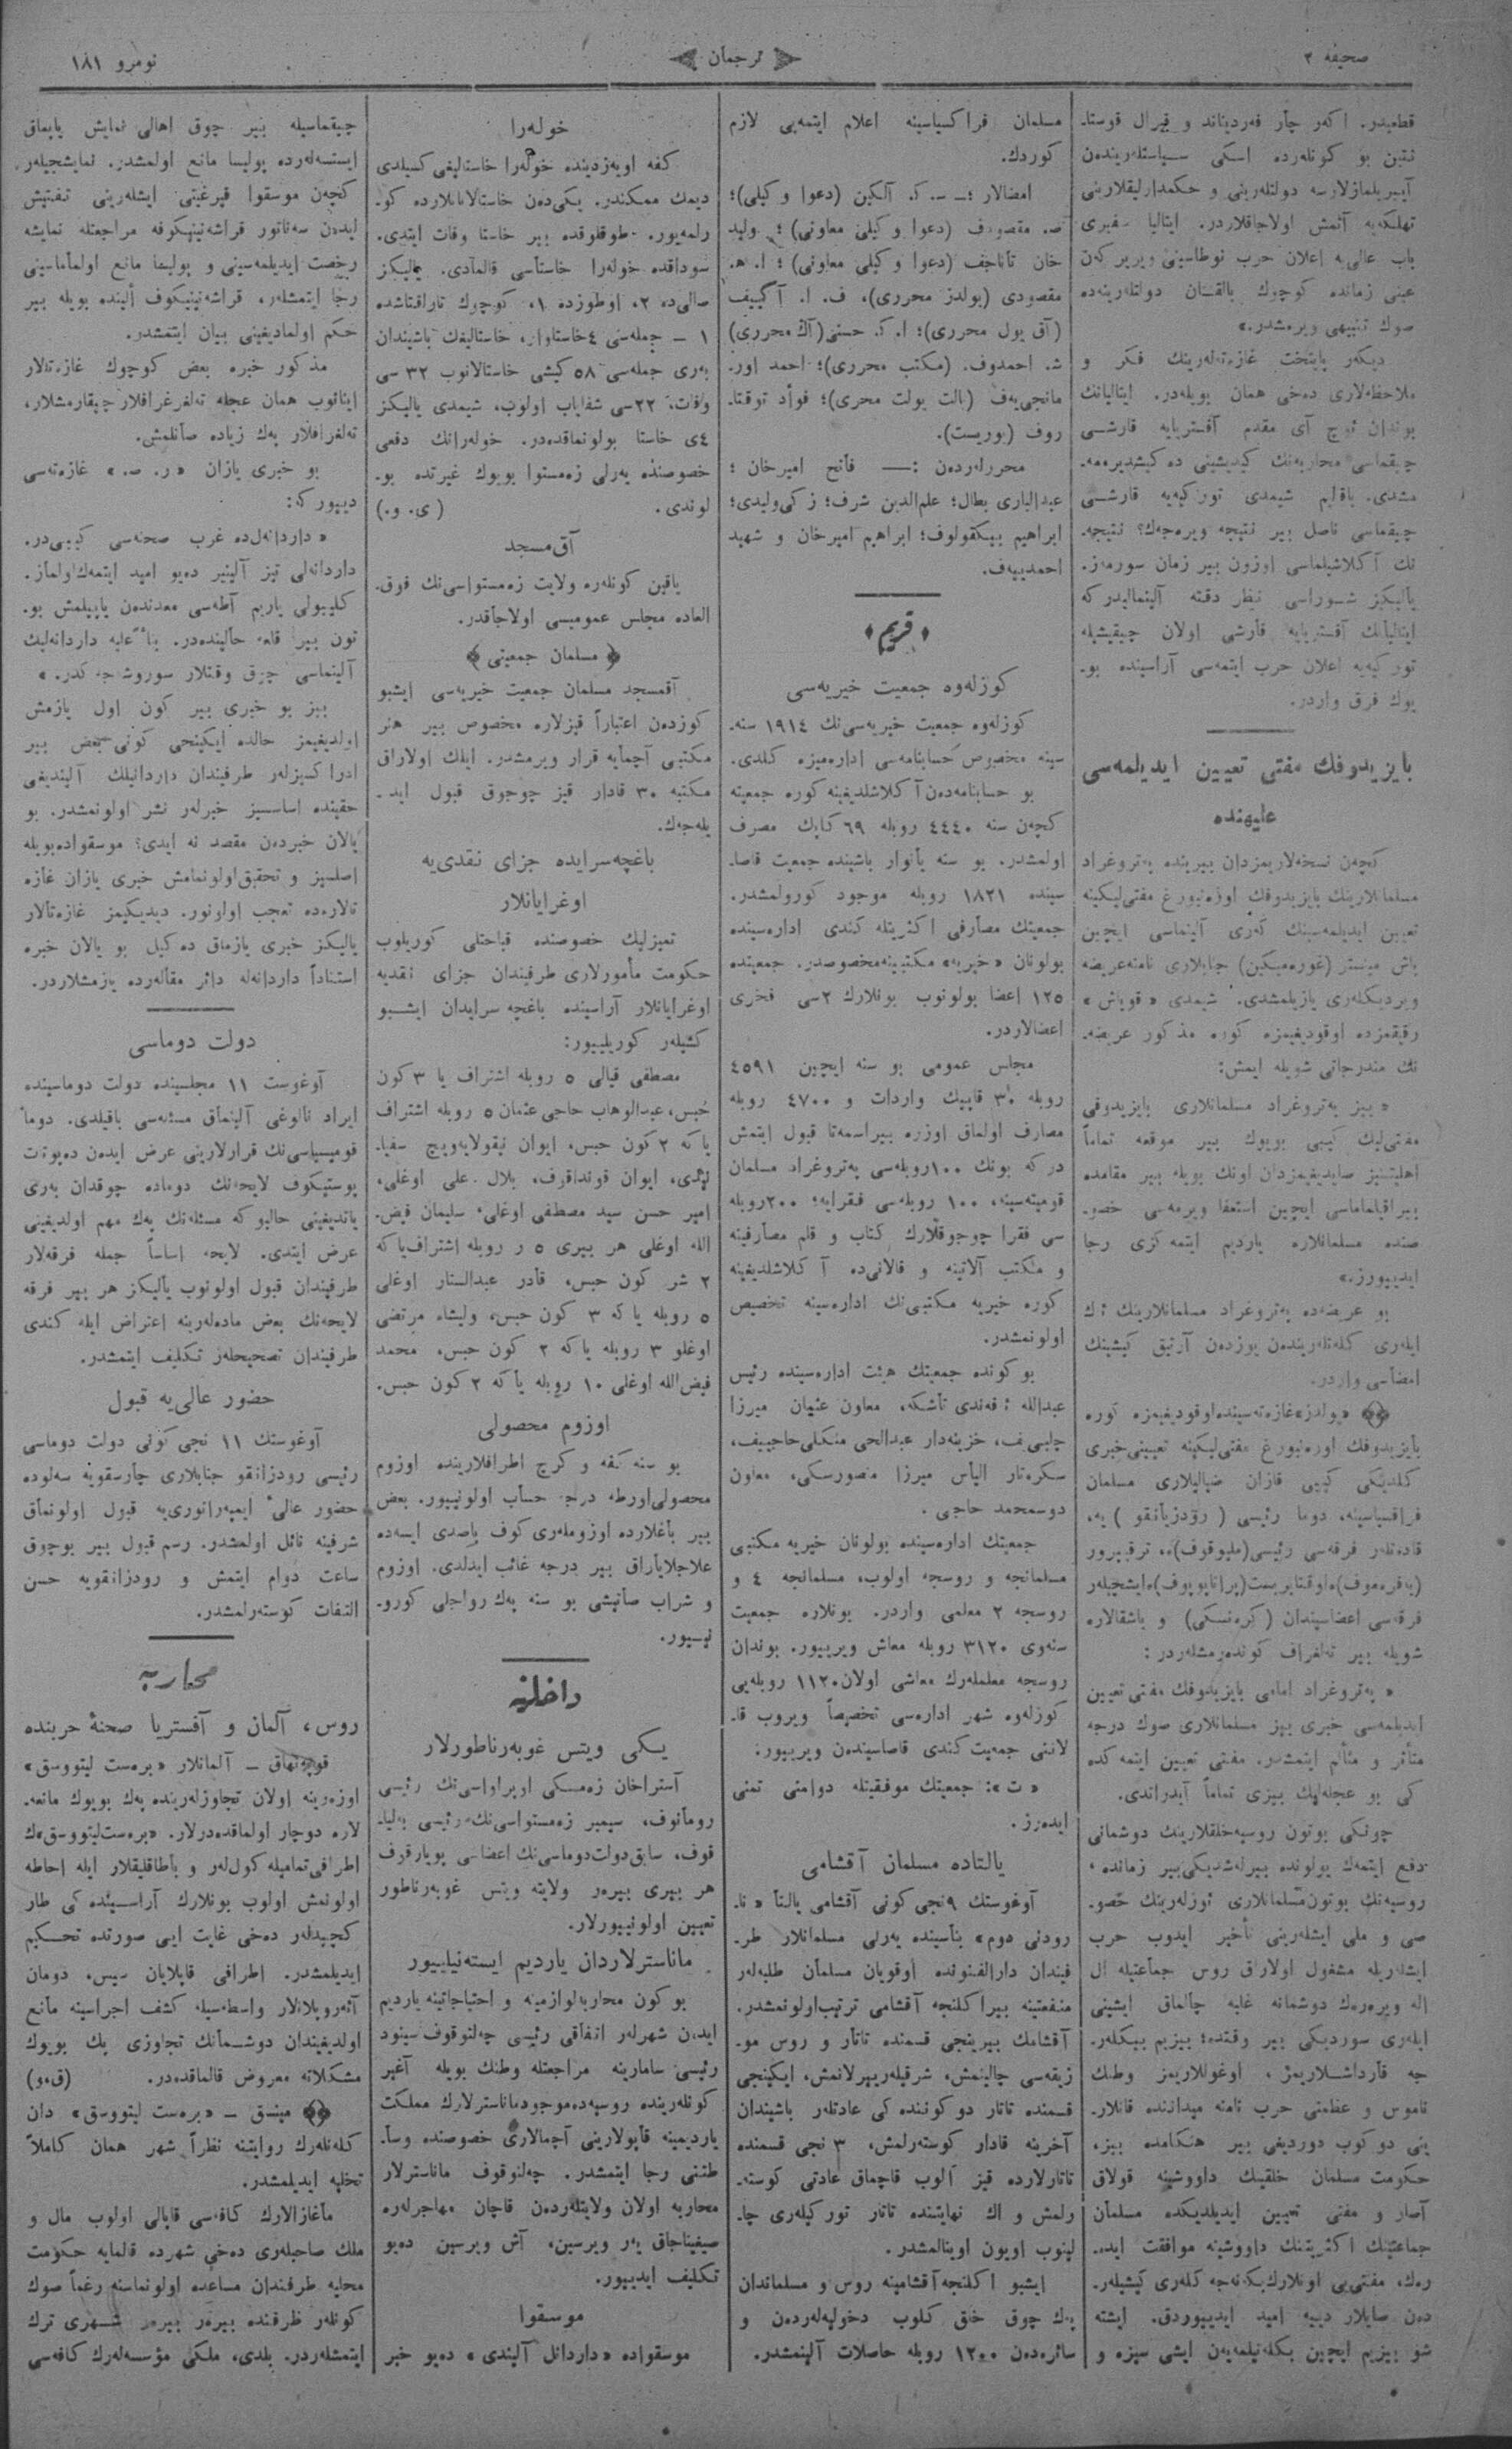 صحیفه ٢
ترجمان
نومرو ١٨١
قطعیدر. اکەر چار فەردیناند و قیرال قوستا-
نتین بو کونلەردە اسکی سیاستلەریندەن
آییریلمازلارسە دولتلەرینی و حکمدارلیقلارینی
تهلکەیە آتمش اولاجاقلاردر. ایتالیا سفیری
باب عالی‌یە اعلان حرب نوطاسینی ویریرکەن
عینی زماندە کوچوک بالقان دولتلەرینەدە
صوک تنبیهی ویرمشدر.»
دیکەر پایتخت غازەتەلەرینک فکر و
ملاحظەلاری دەخی همان بویلەدر. ایتالیانک
بوندان ئوچ آی مقدم آفستریایە قارشی
چیقماسی محاربەنک کیدیشینی دەکیشدیرمە-
مشدی. باقالیم شیمدی تورکیەیە قارشی
چیقماسی ناصل بیر نتیجە ویرەجەک؟ نتیجە-
نک آکلاشیلماسی اوزون بیر زمان سورمەز.
یالیکیز شوراسی نظر دقتە آلینمالیدر کە
ایتالیانک آفستریایە قارشی اولان چیقیشیلە
تورکیەیە اعلان حرب ایتمەسی آراسیندە بو-
یوک فرق واردر.
بایزیدوفک مفتی تعیین ایدیلمەسی
علیهندە
کچەن نسخەلاریمزدان بیریندە پەتروغراد
مسلمانلارینک بایزیدوفک اورەنبورغ مفتی‌لیکینە
تعیین ایدیلمەسینک کەری آلینماسی ایچین
باش مینستر (غورەمیکین) جنابلاری نامنە عریضە
ویردیکلەری یازیلمشدی. شیمدی «قویاش»
رفیقمزدە اوقودیغیمزە کورە مذکور عریضە-
نک مندرجاتی شویلە ایمش:
«بیز پەتروغراد مسلمانلاری بایزیدوفی
مفتی‌لیک کیبی بویوک بیر موقعە تماماً
اهلیتسز صایدیغیمزدان اونک بویلە بیر مقامدە
بیراقیلماماسی ایچین استعفا ویرمەسی خصو-
صندە مسلمانلارە یاردیم ایتمەکزی رجا
ایدییورز.»
بو عریضەدە پەتروغراد مسلمانلارینک ئک
ایلەری کلەنلەریندەن یوزدەن آرتیق کیشینک
امضاسی واردر.
«یولدز» غازەتەسیندە اوقودیغیمزە کورە
بایزیدوفک اورەنبورغ مفتی‌لیکینە تعیینی خبری
کلدیکی کیبی قازان ضیالیلاری مسلمان
فراقسیاسینە، دوما رئیسی (رودزیانقو) یە،
قادەتلەر فرقەسی رئیسی (ملیوقوف)ە، ترقیپرور
فرقەسی اعضاسیندان (کرەنسکی) و باشقالارە
شویلە بیر تەلغراف کوندەرمشلەردر:
«پەتروغراد امامی بایزیدوفک مفتی تعیین
ایدیلمەسی خبری بیز مسلمانلاری صوک درجە
متأثر و متألم ایتمشدر. مفتی تعیین ایتمەکدە
کی بو عجلەلیک بیزی تماماً آیدیراتدی.
چونکی بوتون روسیە خلقلارینک دوشمانی
دفع ایتمەک یولوندە بیرلەشدیکی بیر زماندە،
روسیەنک بوتون مسلمانلاری ئوزلەرینک خصو-
صی و ملی ایشلەرینی تأخیر ایدوب حرب
ایشلەریلە مشغول اولاراق روس جماعتیلە ال
الە ویرەرەک دوشمانە غلبە چالماق ایشینی
ایلەری سوردیکی بیر وقتدە؛ بیزیم بیکلەر-
جە قارداشلاریمز، اوغوللاریمز وطنک
ناموس و عظمتی حرب نامنە میداننده قانلار-
ینی دوکوب دوردیغی بیر هنکامدە بیز،
حکومت مسلمان خلقینک داووشینە قولاق
آصار و مفتی تعیین ایدیلدیکدە مسلمان
جماعتینک اکثریتنک داووشینە موافقت ایدە-
رەک، مفتی‌یی اونلارک بکەنەجەکلەری کیشیلەر-
دەن صایلار دییە امید ایدییوردق. ایشتە
شو بیزیم ایچین بکلەنیلمەیەن ایشی سیزە و
مسلمان فراکسیاسینە اعلام ایتمەیی لازم
کوردک.
امضالار: — س. ک. آلکین (دعوا وکیلی)؛
ص. مقصودف (دعوا وکیلی معاونی)؛ ولید
خان تاناچف (دعوا وکیلی معاونی)؛ ا. ھ.
مقصودی (یولدز محرری)، ف. ا. آگییف
(آق یول محرری)؛ ا. ک. حسنی (آڭ محرری)
ش. احمدوف. (مکتب محرری)؛ احمد اور-
مانجی‌یەف (بالت یولت محرری)؛ فوأد توقتا-
روف (یوریست).
محررلەردەن: — فاتح امیرخان؛
عبدالباری بطال؛ علم‌الدین شرف؛ زکی ولیدی؛
ابراهیم بیکقولوف؛ ابراهیم امیرخان و شهید
احمدییەف.
﴿ قریم ﴾
کوزلەوە جمعیت خیریەسی
کوزلەوە جمعیت خیریەسی‌نک ١٩١٤ سنە-
سینە مخصوص حسابنامەسی ادارەمیزە کلدی.
بو حسابنامەدەن آکلاشلدیغینە کورە جمعیتە
کچەن سنە ٤٤٤٠ روبلە ٦٩ کاپک مصرف
اولمشدر. بو سنە یانوار باشیندە جمعیت قاصا-
سیندە ١٨٢١ روبلە موجود کورولمشدر.
جمعیتک مصارفی اکثریتلە کندی ادارەسیندە
بولونان «خیریە» مکتبینە مخصوصدر. جمعیتدە
١٢٥ اعضا بولونوب بونلارک ٢سی فخری
اعضالاردر.
مجلس عمومی بو سنە ایچین ٤٥٩١
روبلە ٣٠ قاپیک واردات و ٤٧٠٠ روبلە
مصارف اولماق اوزرە بیر اسمەتا قبول ایتمش
درکە بونک ١٠٠ روبلەسی پەتروغراد مسلمان
قومیتەسینە، ١٠٠ روبلەسی فقرایە؛ ٢٠٠ روبلە
سی فقرا چوجوقلارک کتاب و قلم مصارفینە
و مکتب آلاتینە و قالانی‌دە آکلاشلدیغینە
کورە خیریە مکتبی‌نک ادارەسینە تخصیص
اولونمشدر.
بو کوندە جمعیتک هیئت ادارەسیندە رئیس
عبدالله ئەفەندی تاشکە، معاون عثمان میرزا
چلبی‌یف، خزینەدار عبدالحی منکلی حاجییف،
سکرەتار الیاس میرزا منصورسکی، معاون
دوسمحمد حاجی.
جمعیتک ادارەسیندە بولونان خیریە مکتبی
مسلمانجە و روسجە اولوب، مسلمانجە ٤ و
روسجە ٢ معلمی واردر. بونلارە جمعیت
سنەوی ٣١٢٠ روبلە معاش ویرییور. بوندان
روسجە معلملەرک معاشی اولان ١١٢٠ روبلەیی
کوزلەوە شهر ادارەسی تخصیصاً ویروب قا-
لانی جمعیت کندی قاصاسیندەن ویرییور.
«ت»: جمعیتک موفقیتلە دوامنی تمنی
ایدەرز.
یالتادە مسلمان آقشامی
آوغوستک ٩نجی کونی آقشامی یالتا «نا-
رودنی دوم» بناسیندە یەرلی مسلمانلار طر-
فیندان دارالفنوندە اوقویان مسلمان طلبەلەر
منفعتینە بیر اکلنجە آقشامی ترتیب اولونمشدر.
آقشامک بیرینجی قسمندە تاتار و روس مو-
زیقەسی چالینمش، شرقیلەر ییرلانمش، ایکینجی
قسمندە تاتار دوکونندە کی عادتلەر باشیندان
آخرینە قادار کوستەرلمش، ٣ نجی قسمندە
تاتارلاردە قیز آلوب قاچماق عادتی کوستە-
رلمش و اڭ نهایتندە تاتار تورکیلەری چا-
لینوب اویون اوینالمشدر.
ایشبو اکلنجە آقشامینە روس و مسلماندان
پک چوق خلق کلوب دخولیەلەردەن و
سائرەدەن ١٢٠٠ روبلە حاصلات آلینمشدر.
خولەرا
کفە اویەزدیندە خولەرا خاستالیغی کسیلدی
دیمک ممکندر. یکی‌دەن خاستالانانلاردە کو-
رلمەیور. طوقلوقدە بیر خاستا وفات ایتدی.
سوداقدە خولەرا خاستأسی قالمادی. یالیکز
صالی‌دە ٢، اوطوزدە ١، کوچوک تاراقتاشدە
١ — جملەسی ٤ خاستا وار. خاستالیغک باشیندان
بەری جملەسی ٥٨ کیشی خاستالانوب ٣٢ سی
وفات، ٢٢سی شفایاب اولوب، شیمدی یالیکز
٤ی خاستا بولونماقدەدر. خولەرانک دفعی
خصوصندە یەرلی زەمستوا بویوک غیرتدە بو-
لوندی. (ی. و.)
آق‌مسجد
یاقین کونلەردە ولایت زەمستواسی‌نک فوق-
العادە مجلس عمومیسی اولاجاقدر.
﴿ مسلمان جمعیتی ﴾
آقمسجد مسلمان جمعیت خیریەسی ایشبو
کوزدەن اعتباراً قیزلارە مخصوص بیر هنر
مکتبی آچمایە قرار ویرمشدر. ایلک اولاراق
مکتبە ٣٠ قادار قیز چوجوق قبول ایدـ
یلەجەک.
باغچەسرایدە جزای نقدی‌یە
اوغرایانلار
تمیزلیک خصوصندە قباحتلی کوریلوب
حکومت مأمورلاری طرفیندان جزای نقدیە
اوغرایانلار آراسیندە باغچە سرایدان ایشبو
کشیلەر کوریلییور:
مصطفی قپالی ٥ روبلە اشتراف یا ٣ کون
حبس، عبدالوهاب حاجی عثمان ٥ روبلە اشتراف
یاکە ٢ کون حبس، ایوان نیقولایەویچ سفیا-
نیدی، ایوان قونداقوف، بلال علی اوغلی،
امیر حسن سید مصطفی اوغلی، سلیمان فیض-
الله اوغلی هر بیری ٥ ر روبلە اشتراف یاکە
٢ شر کون حبس، قادر عبدالستار اوغلی
٥ روبلە یاکە ٣ کون حبس، ولیشاە مرتضی
اوغلو ٣ روبلە یاکە ٢ کون حبس، محمد
فیض‌الله اوغلی ١٠ روبلە یاکە ٢ کون حبس.
اوزوم محصولی
بو سنە کفە و کرچ اطرافلاریندە اوزوم
محصولی اورطە درجە حساب اولونییور. بعض
بیر باغلاردە اوزوملەری کوف باصدی ایسەدە
علاجلایاراق بیر درجە غائب ایدلدی. اوزوم
و شراب صاتیشی بو سنە پەک رواجلی کورو-
نییور.
داخلیە
یکی ویتس غوبەرناطورلار
آستراخان زەمسکی اوپراواسی‌نک رئیسی
رومانوف، سیمبیر زەمستواسی‌نک رئیسی بەلیا-
قوف، سابق دولت دوماسی‌نک اعضاسی بویارقوف
هر بیری بیرەر ولایتە ویتس غوبەرناطور
تعیین اولونییورلار.
ماناسترلاردان یاردیم ایستەنیلییور
بو کون محاربە لوازمینە و احتیاجاتینە یاردیم
ایدەن شهرلەر اتفاقی رئیسی چەلنوقوف سینود
رئیسی سامارینە مراجعتلە وطنک بویلە آغیر
کونلەریندە روسیەدە موجود ماناسترلارک مملکت
یاردیمینە قاپولارینی آچمالاری خصوصندە وسا-
طتنی رجا ایتمشدر. چەلنوقوف ماناسترلار
محاربە اولان ولایتلەردەن قاچان مهاجرلەرە
صیغیناجاق یەر ویرسین، آش ویرسین دەیو
تکلیف ایدییور.
موسقوا
موسقوادە «داردانل آلیندی» دەیو خبر
چیقماسیلە بیر چوق اهالی نمایش یاپماق
ایستسەلەردە پولیسا مانع اولمشدر. نمایشجیلەر
کچەن موسقوا قیرغینی ایشلەرینی تفتیش
ایدەن سەناتور قراشەنینیکوفە مراجعتلە نمایشە
رخصت ایدیلمەسینی و پولیسا مانع اولماماسینی
رجا ایتمشلەر، قراشەنینیکوف ألیندە بویلە بیر
حکم اولمادیغینی بیان ایتمشدر.
مذکور خبرە بعض کوچوک غازەتەلار
اینانوب همان عجلە تەلغرافلار چیقارمشلار،
تەلغرافلار پەک زیادە صاتلمش.
بو خبری یازان «ر. ص.» غازەتەسی
دییورکە:
«داردانەل‌دە غرب صحنەسی کیبی‌در.
داردانەلی تیز آلینیر دەیو امید ایتمەک اولماز.
کلیبولی یاریم آطەسی معدندەن یاپیلمش بو-
تون بیر قلعە حالیندەدر. بناءً علیە داردانەلیک
آلینماسی چوق وقتلار سوروشەجەکدر.»
بیز بو خبری بیر کون اول یازمش
اولدیغیمز حالدە ایکینجی کونی بعض بیر
ادراکسیزلەر طرفیندان داردانیلک آلیندیغی
حقیندە اساسسیز خبرلەر نشر اولونمشدر. بو
یالان خبردن مقصد نە ایدی؟ موسقوادە بویلە
اصلسیز و تحقیق اولونمامش خبری یازان غازە
تالارەدە تعجب اولونور. دیدیکیمز غازەتالار
یالیکز خبری یازماق دەکیل بو یالان خبرە
استناداً داردانەلە دائر مقالەردە یازمشلاردر.
دولت دوماسی
آوغوست ١١ مجلسیندە دولت دوماسیندە
ایراد نالوغی آلینماق مسئلەسی باقیلدی. دوما
قومیسیاسی‌نک قرارلارینی عرض ایدەن دەپوتات
پوستنیکوف لایحەنک دومادە چوقدان بەری
یاتدیغینی حالبوکە مسئلەنک پەک مهم اولدیغینی
عرض ایتدی. لایحە اساساً جملە فرقەلار
طرفیندان قبول اولونوب یالیکز هر بیر فرقە
لایحەنک بعض مادەلەرینە اعتراض ایلە کندی
طرفیندان تصحیحلەر تکلیف ایتمشدر.
حضور عالی‌یە قبول
آوغوستک ١١ نجی کونی دولت دوماسی
رئیسی رودزانقو جنابلاری چارسقویە سەلودە
حضور عالیٔ ایمپەراتوری‌یە قبول اولونماق
شرفینە نائل اولمشدر. رسم قبول بیر بوچوق
ساعت دوام ایتمش و رودزانقویە حسن
التفات کوستەرلمشدر.
محاربە
روس، آلمان و آفستریا صحنۀ حربندە
قوپەنهاق — آلمانلار «برەست لیتووسق»
اوزەرینە اولان تجاوزلەریندە پەک بویوک مانعە-
لارە دوچار اولماقدەدرلار. «برەست لیتووسق»ک
اطرافی تمامیلە کول‌لەر و باطاقلیقلار ایلە احاطە
اولونمش اولوب بونلارک آراسیندەکی طار
کچیدلەر دەخی غایت ایی صورتدە تحکیم
ایدیلمشدر. اطرافی قاپلایان سیس، دومان
آئەروپلانلار واسطەسیلە کشف اجراسینە مانع
اولدیغیندان دوشمانک تجاوزی پک بویوک
مشکلاتە معروض قالماقدەدر. (ق.و)
مینسق — «برەست لیتووسق» دان
کلەنلەرک روایتینە نظراً شهر همان کاملاً
تخلیە ایدیلمشدر.
مأغازالارک کافەسی قاپالی اولوب مال و
ملک صاحبلەری دەخی شهردە قالمایە حکومت
محلیە طرفندان مساعدە اولونماسنە رغماً صوک
کونلەر ظرفندە بیرەر بیرەر شهری ترک
ایتمشلەردر. بلدی، ملکی مؤسسەلەرک کافەسی